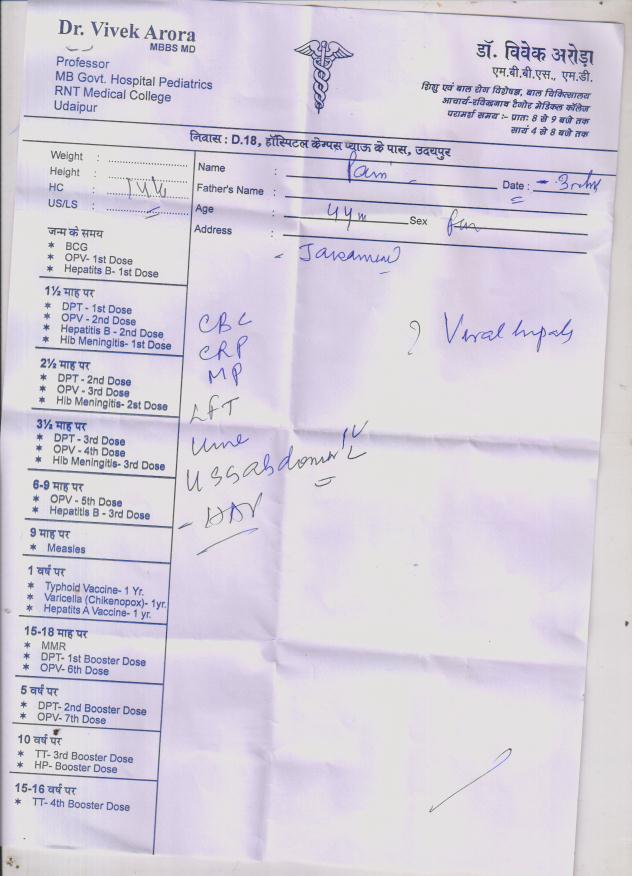 Dr. Vivek Arora
MBBS MD
Professor
MB Govt. Hospital Pediatrics
RNT Medical College
Udaipur
डॉ. विवेक अरोड़ा
एम.बी.बी.एस., एम.डी.
शिशु एवं बाल रोग विशेषज्ञ, बाल चिकित्सालय
आचार्य-रविन्द्रनाथ टैगोर मेडिकल कॉलेज
परामर्श समय :- प्रातः 8 से 9 बजे तक
सायं 4 से 8 बजे तक
निवास : D.18, हॉस्पिटल केम्पस प्याऊ के पास, उदयपुर
Weight :
Height :
HC :
US/LS :
Name :
Date :
Father's Name :
Age : Sex
Address :
जन्म के समय
* BCG
* OPV- 1st Dose
* Hepatits B- 1st Dose
1½ माह पर
* DPT - 1st Dose
* OPV - 2nd Dose
* Hepatitis B - 2nd Dose
* Hib Meningitis- 1st Dose
2½ माह पर
* DPT - 2nd Dose
* OPV - 3rd Dose
* Hib Meningitis- 2st Dose
3½ माह पर
* DPT - 3rd Dose
* OPV - 4th Dose
* Hib Meningitis- 3rd Dose
6-9 माह पर
* OPV - 5th Dose
* Hepatitis B - 3rd Dose
9 माह पर
* Measles
1 वर्ष पर
* Typhoid Vaccine- 1 Yr.
* Varicella (Chikenopox)- 1yr.
* Hepatits A Vaccine- 1 yr.
15-18 माह पर
* MMR
* DPT- 1st Booster Dose
* OPV- 6th Dose
5 वर्ष पर
* DPT- 2nd Booster Dose
* OPV- 7th Dose
10 वर्ष पर
* TT- 3rd Booster Dose
* HP- Booster Dose
15-16 वर्ष पर
* TT- 4th Booster Dose
CBC
? Viral
CRP
MP
LFT
Urine
USG abdomen
HAV